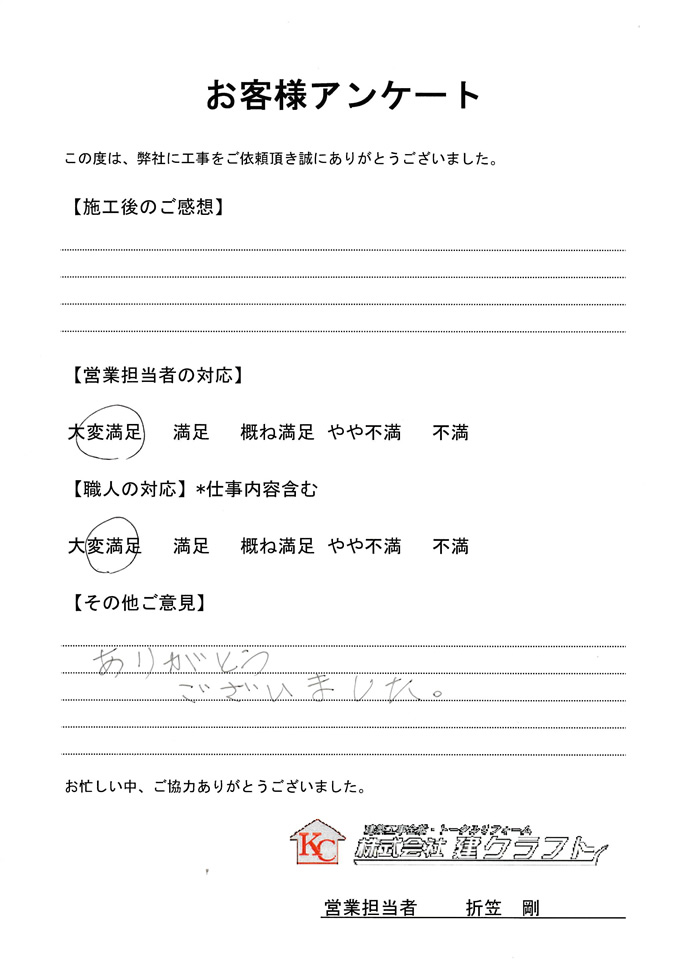 お客様アンケート
この度は、弊社に工事をご依頼頂き誠にありがとうございました。
【施工後のご感想】
【営業担当者の対応】
大変満足 満足 概ね満足 やや不満 不満
【職人の対応】*仕事内容含む
大変満足 満足 概ね満足 やや不満 不満
【その他ご意見】
ありがとう
ございました。
お忙しい中、ご協力ありがとうございました。
建築工事全般・トータルリフォーム
KC 株式会社 建クラフト
営業担当者 折笠 剛